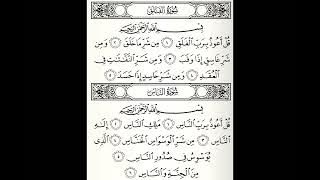 سُورَةُ الفَلَقِ
بِسْمِ اللَّهِ الرَّحْمَٰنِ الرَّحِيمِ
قُلْ أَعُوذُ بِرَبِّ الْفَلَقِ ١ مِن شَرِّ مَا خَلَقَ ٢ وَمِن
شَرِّ غَاسِقٍ إِذَا وَقَبَ ٣ وَمِن شَرِّ النَّفَّاثَاتِ فِي
الْعُقَدِ ٤ وَمِن شَرِّ حَاسِدٍ إِذَا حَسَدَ ٥
سُورَةُ النَّاسِ
بِسْمِ اللَّهِ الرَّحْمَٰنِ الرَّحِيمِ
قُلْ أَعُوذُ بِرَبِّ النَّاسِ ١ مَلِكِ النَّاسِ ٢ إِلَٰهِ
النَّاسِ ٣ مِن شَرِّ الْوَسْوَاسِ الْخَنَّاسِ ٤ الَّذِي
يُوَسْوِسُ فِي صُدُورِ النَّاسِ ٥
مِنَ الْجِنَّةِ وَالنَّاسِ ٦